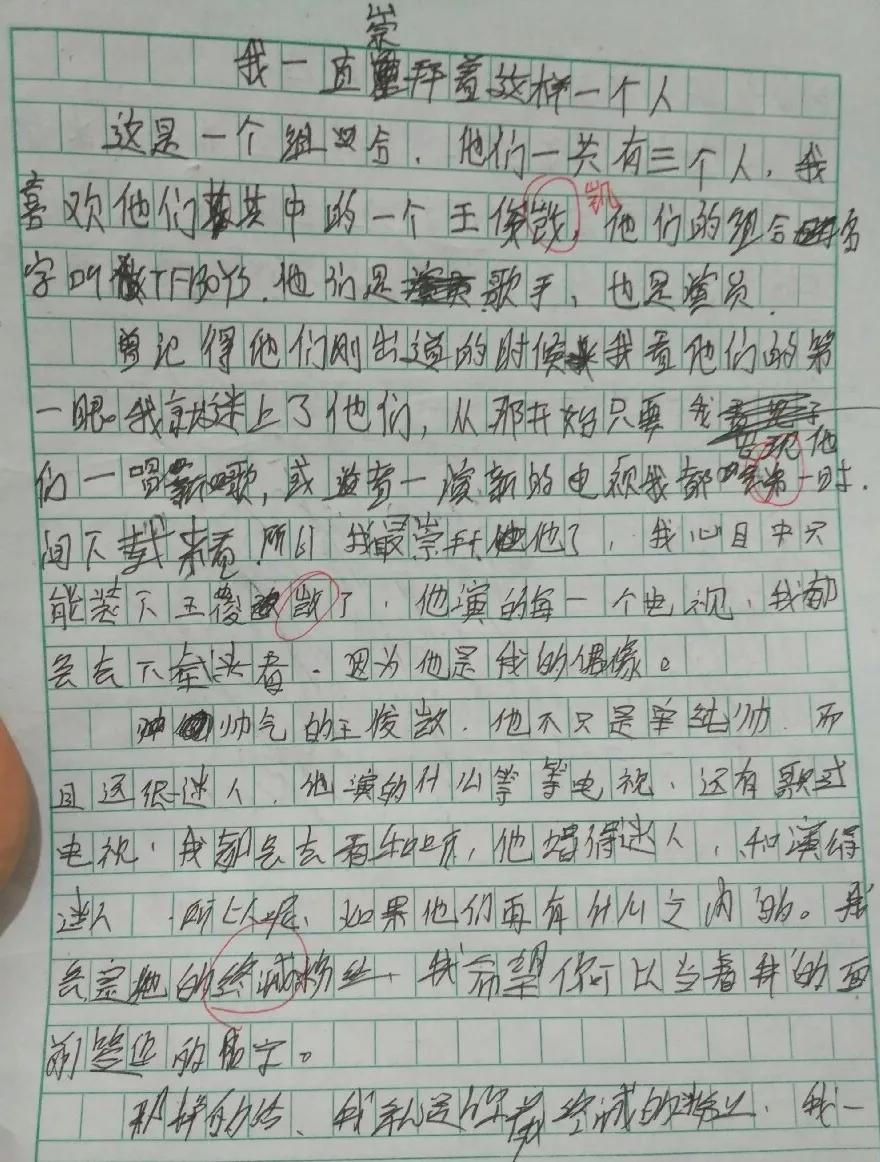 崇
我一直拜着这样一个人
这是一个组合.他们一共有三个人,我
喜欢他们其中的一个王俊凯凯,他们的组合名
字叫做TFBOYS.他们是歌手、也是演员.
曾记得他们刚出道的时候我看他们的第
一眼。我就迷上了他们,从那开始只要我
发现他
们一唱新歌,或道着一演新的电视我都第一时.
间下载来看.所以我最崇拜他了,我心目中只
能装下王俊凯了.他演的每一个电视、我都
会去下载来看.因为他是我的偶像。
帅气的王俊凯.他不只是单纯帅.而
且还很迷人.他演的什么等等电视、还有歌或
电视.我都会去看和听,他唱得迷人,和演得
迷人.所以呢、如果他们再有什么之内的。我
会是他的终诚粉丝、我希望你可以当着我的面
前签还的名字。
那样的话、我就是你最终诚的粉丝、我一